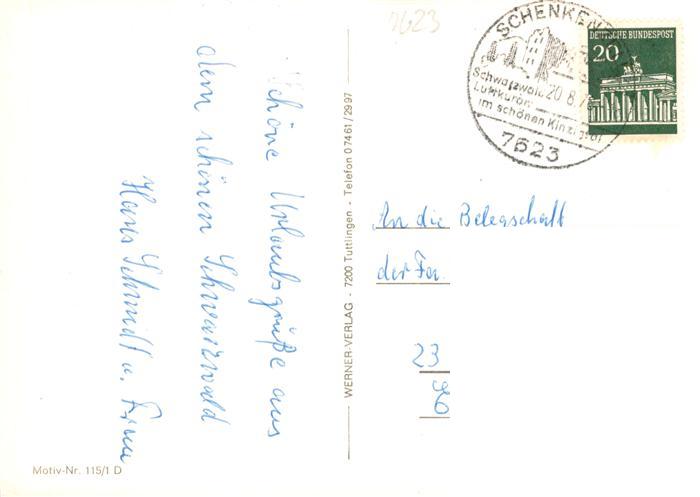 7623
SCHENKEN
Schwarzwald
Luftkurort
im schönen Kinzigtal
20.8.7
7623
DEUTSCHE BUNDESPOST
20
Schöne Urlaubsgrüße aus
dem schönen Schwarzwald
Hans Schmidt u. Erna
WERNER-VERLAG - 7200 Tuttlingen - Telefon 07461/2997
An die Belegschaft
der Fa.
23
Motiv-Nr. 115/1 D